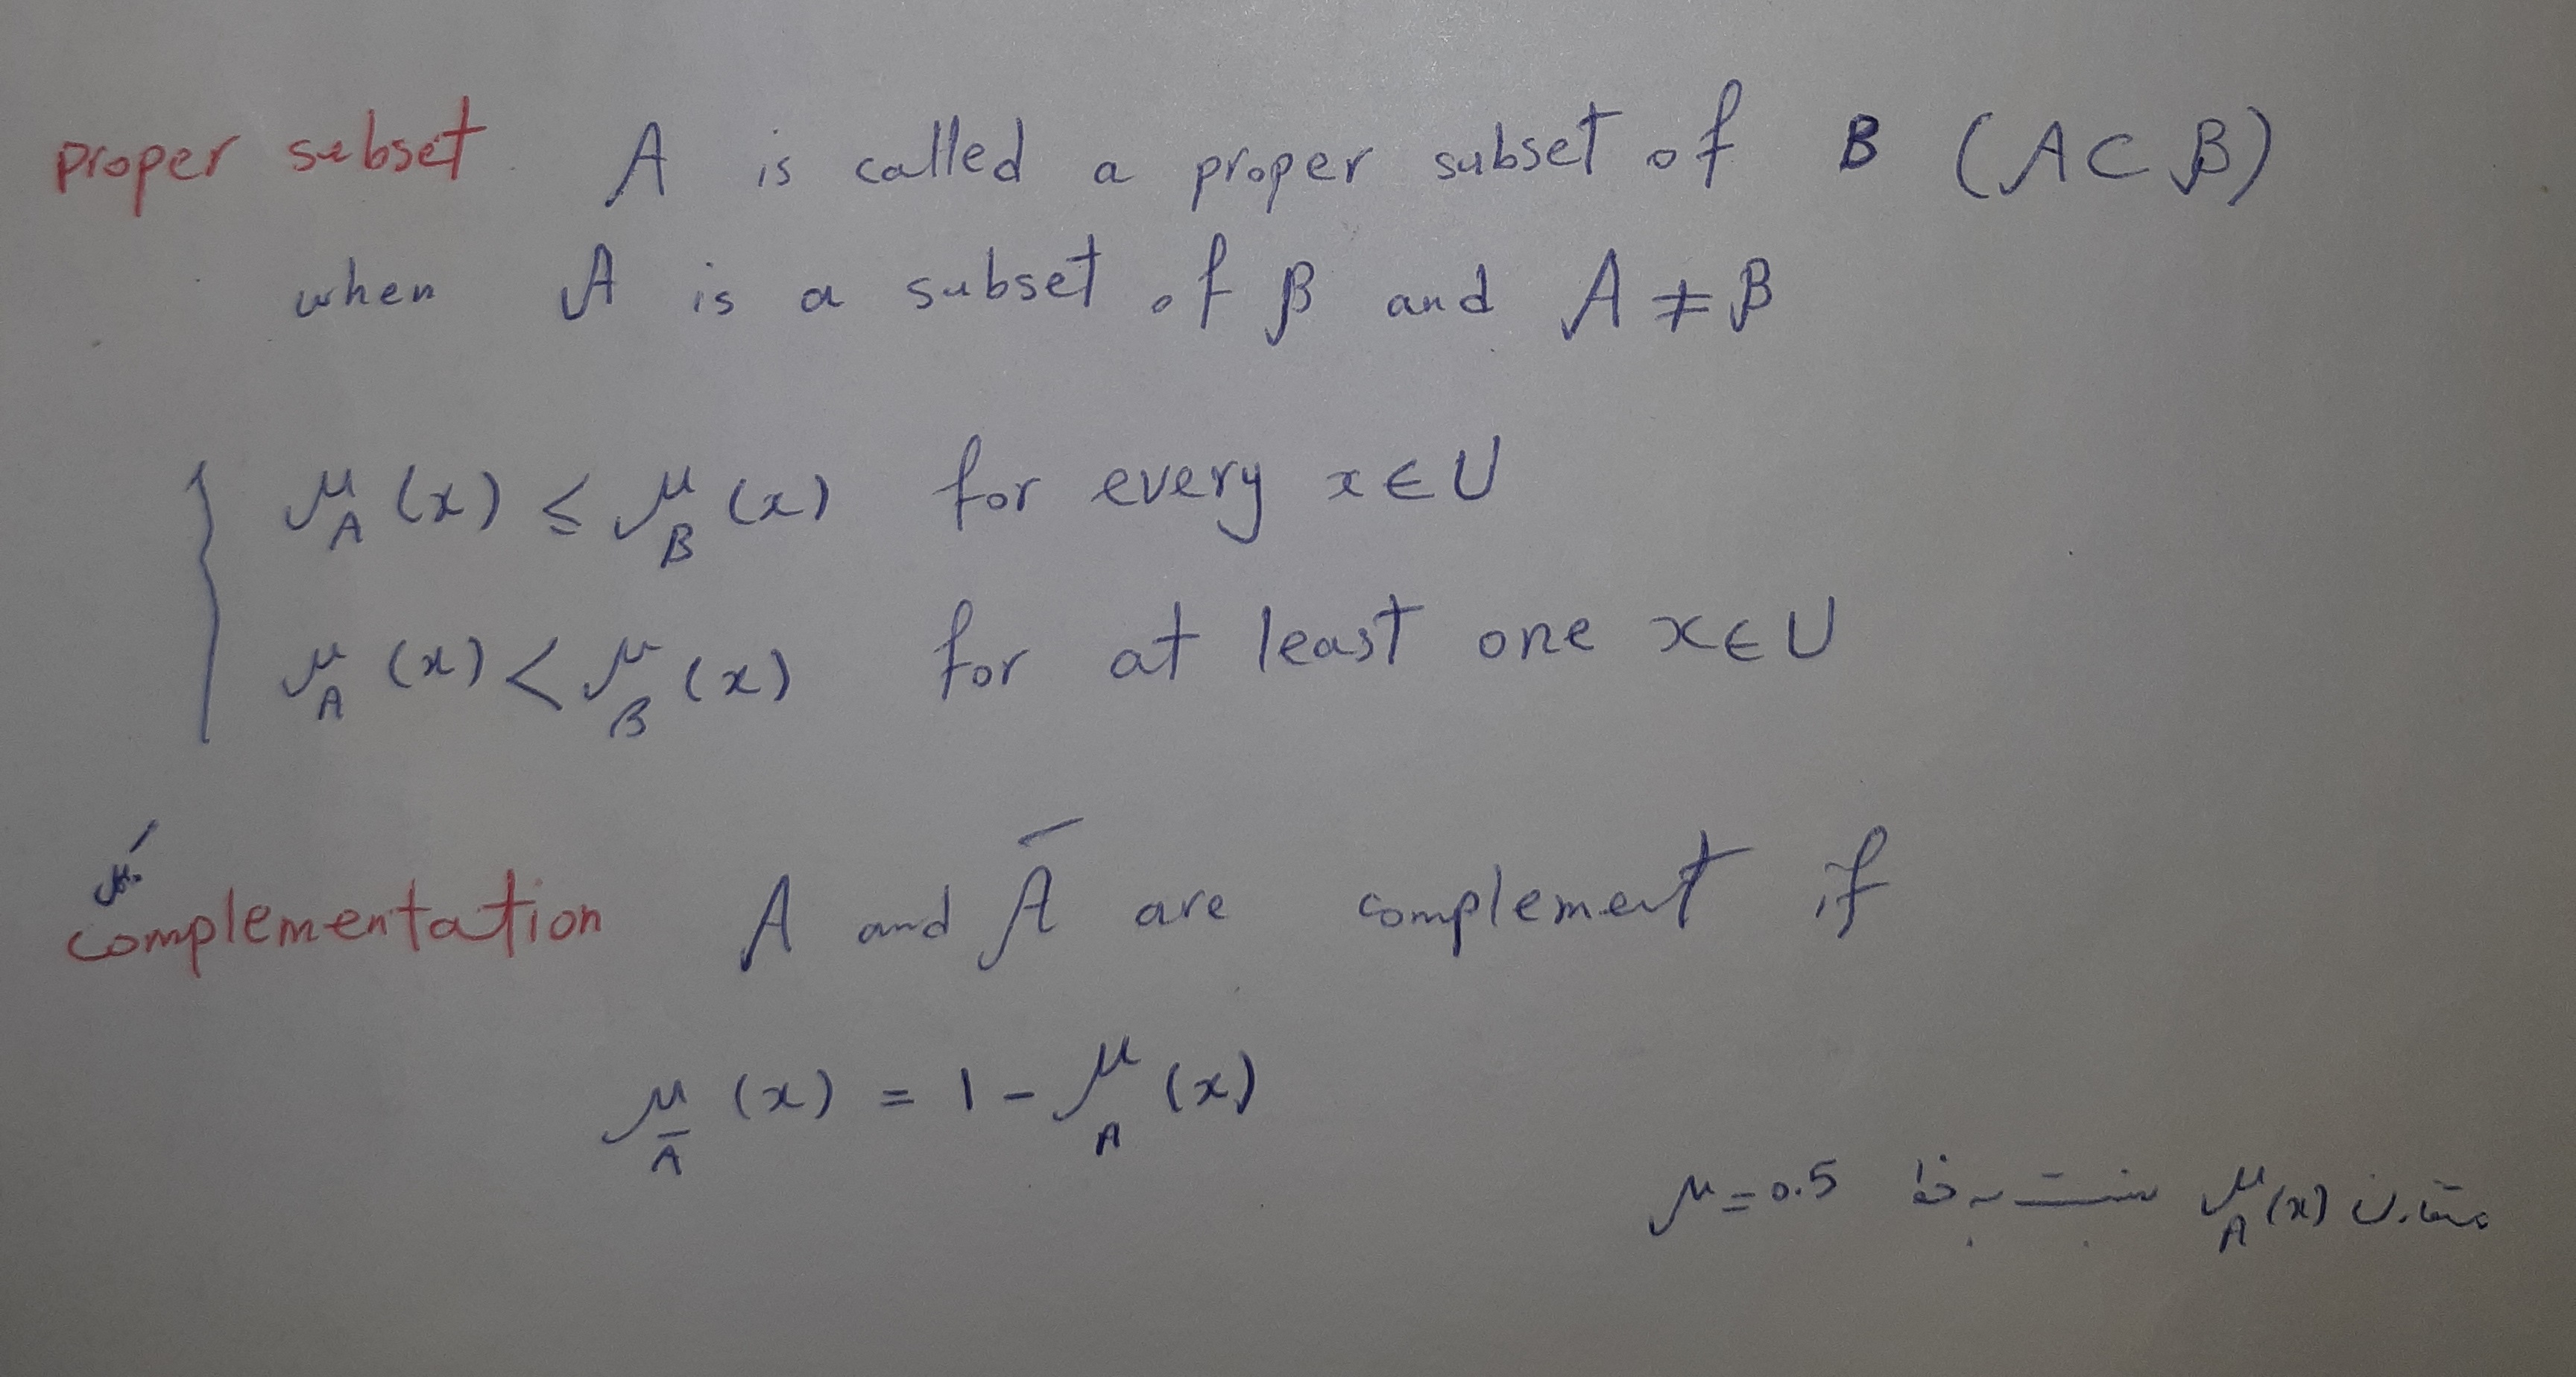 proper subset A is called a proper subset of B (A ⊂ B)
when A is a subset of B and A ≠ B
μ_A (x) ≤ μ_B (x) for every x ∈ U
μ_A (x) < μ_B (x) for at least one x ∈ U
complementation A and Ā are complement if
μ_Ā (x) = 1 - μ_A (x)
متقارن μ_A (x) نسبت به خط μ = 0.5